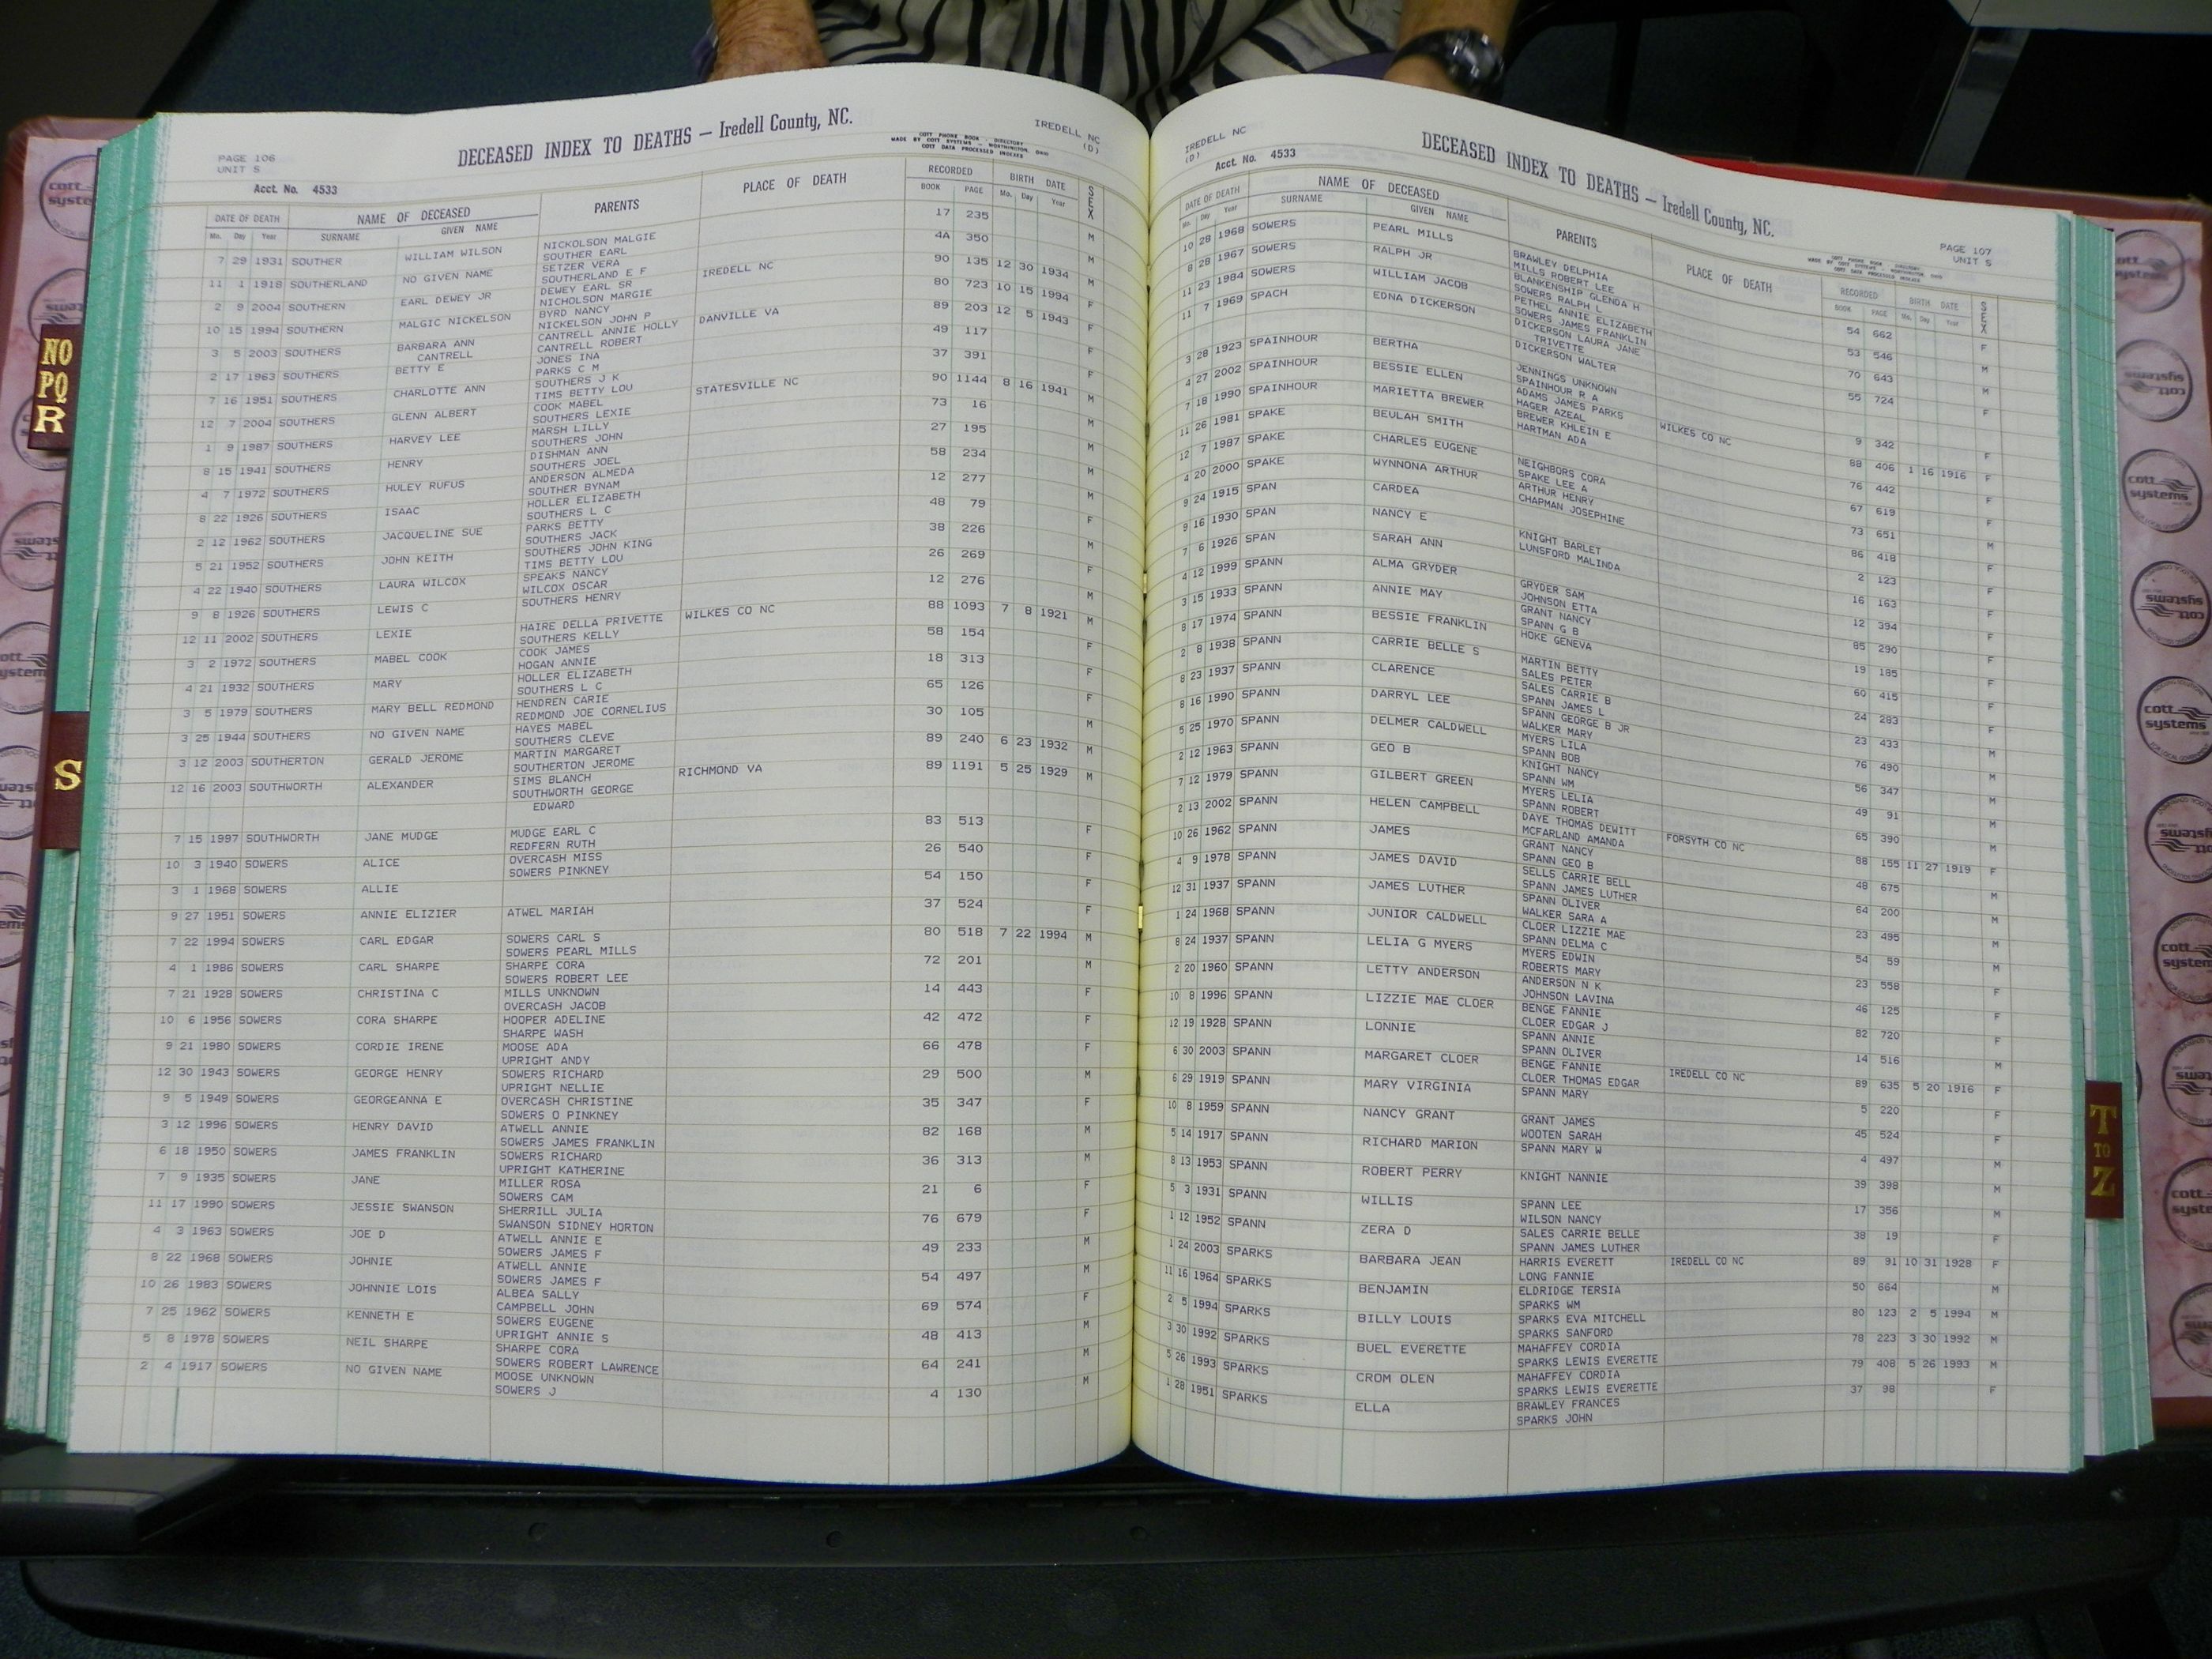 PAGE 106
UNIT S
DECEASED INDEX TO DEATHS — Iredell County, NC.
COTT PHONE BOOK - DIRECTORY
MADE BY COTT SYSTEMS - WORTHINGTON, OHIO
COTT DATA PROCESSED INDEXES
IREDELL NC
(D)
Acct. No. 4533
DATE OF DEATH NAME OF DECEASED PARENTS PLACE OF DEATH RECORDED BIRTH DATE SEX
Mo. Day Year SURNAME GIVEN NAME BOOK PAGE Mo. Day Year
7 29 1931 SOUTHER WILLIAM WILSON NICKOLSON MALGIE 17 235 M
SOUTHER EARL
11 1 1918 SOUTHERLAND NO GIVEN NAME SETZER VERA 4A 350 M
SOUTHERLAND E F
2 9 2004 SOUTHERN EARL DEWEY JR DEWEY EARL SR IREDELL NC 90 135 12 30 1934 M
NICHOLSON MARGIE
10 15 1994 SOUTHERN MALGIC NICKELSON BYRD NANCY 80 723 10 15 1994 F
NICKELSON JOHN P
3 5 2003 SOUTHERS BARBARA ANN CANTRELL ANNIE HOLLY DANVILLE VA 89 203 12 5 1943 F
CANTRELL CANTRELL ROBERT
2 17 1963 SOUTHERS BETTY E JONES INA 49 117 F
PARKS C M
7 16 1951 SOUTHERS CHARLOTTE ANN SOUTHERS J K 37 391 F
TIMS BETTY LOU
12 7 2004 SOUTHERS GLENN ALBERT COOK MABEL STATESVILLE NC 90 1144 8 16 1941 M
SOUTHERS LEXIE
1 9 1987 SOUTHERS HARVEY LEE MARSH LILLY 73 16 M
SOUTHERS JOHN
8 15 1941 SOUTHERS HENRY DISHMAN ANN 27 195 M
SOUTHERS JOEL
4 7 1972 SOUTHERS HULEY RUFUS ANDERSON ALMEDA 58 234 M
SOUTHER BYNAM
8 22 1926 SOUTHERS ISAAC HOLLER ELIZABETH 12 277 M
SOUTHERS L C
2 12 1962 SOUTHERS JACQUELINE SUE PARKS BETTY 48 79 F
SOUTHERS JACK
5 21 1952 SOUTHERS JOHN KEITH SOUTHERS JOHN KING 38 226 M
TIMS BETTY LOU
4 22 1940 SOUTHERS LAURA WILCOX SPEAKS NANCY 26 269 F
WILCOX OSCAR
9 8 1926 SOUTHERS LEWIS C SOUTHERS HENRY 12 276 M
12 11 2002 SOUTHERS LEXIE HAIRE DELLA PRIVETTE WILKES CO NC 88 1093 7 8 1921 M
SOUTHERS KELLY
3 2 1972 SOUTHERS MABEL COOK COOK JAMES 58 154 F
HOGAN ANNIE
4 21 1932 SOUTHERS MARY HOLLER ELIZABETH 18 313 F
SOUTHERS L C
3 5 1979 SOUTHERS MARY BELL REDMOND HENDREN CARIE 65 126 F
REDMOND JOE CORNELIUS
3 25 1944 SOUTHERS NO GIVEN NAME HAYES MABEL 30 105 M
SOUTHERS CLEVE
3 12 2003 SOUTHERTON GERALD JEROME MARTIN MARGARET 89 240 6 23 1932 M
SOUTHERTON JEROME
12 16 2003 SOUTHWORTH ALEXANDER SIMS BLANCH RICHMOND VA 89 1191 5 25 1929 M
SOUTHWORTH GEORGE
EDWARD
7 15 1997 SOUTHWORTH JANE MUDGE MUDGE EARL C 83 513 F
REDFERN RUTH
10 3 1940 SOWERS ALICE OVERCASH MISS 26 540 F
SOWERS PINKNEY
3 1 1968 SOWERS ALLIE 54 150 F
9 27 1951 SOWERS ANNIE ELIZIER ATWEL MARIAH 37 524 F
7 22 1994 SOWERS CARL EDGAR SOWERS CARL S 80 518 7 22 1994 M
SOWERS PEARL MILLS
4 1 1986 SOWERS CARL SHARPE SHARPE CORA 72 201 M
SOWERS ROBERT LEE
7 21 1928 SOWERS CHRISTINA C MILLS UNKNOWN 14 443 F
OVERCASH JACOB
10 6 1956 SOWERS CORA SHARPE HOOPER ADELINE 42 472 F
SHARPE WASH
9 21 1980 SOWERS CORDIE IRENE MOOSE ADA 66 478 F
UPRIGHT ANDY
12 30 1943 SOWERS GEORGE HENRY SOWERS RICHARD 29 500 M
UPRIGHT NELLIE
9 5 1949 SOWERS GEORGEANNA E OVERCASH CHRISTINE 35 347 F
SOWERS O PINKNEY
3 12 1996 SOWERS HENRY DAVID ATWELL ANNIE 82 168 M
SOWERS JAMES FRANKLIN
6 18 1950 SOWERS JAMES FRANKLIN SOWERS RICHARD 36 313 M
UPRIGHT KATHERINE
7 9 1935 SOWERS JANE MILLER ROSA 21 6 F
SOWERS CAM
11 17 1990 SOWERS JESSIE SWANSON SHERRILL JULIA 76 679 F
SWANSON SIDNEY HORTON
4 3 1963 SOWERS JOE D ATWELL ANNIE E 49 233 M
SOWERS JAMES F
8 22 1968 SOWERS JOHNIE ATWELL ANNIE 54 497 M
SOWERS JAMES F
10 26 1983 SOWERS JOHNNIE LOIS ALBEA SALLY 69 574 F
CAMPBELL JOHN
7 25 1962 SOWERS KENNETH E SOWERS EUGENE 48 413 M
UPRIGHT ANNIE S
5 8 1978 SOWERS NEIL SHARPE SHARPE CORA 64 241 M
SOWERS ROBERT LAWRENCE
2 4 1917 SOWERS NO GIVEN NAME MOOSE UNKNOWN 4 130 M
SOWERS J
IREDELL NC
(D)
DECEASED INDEX TO DEATHS — Iredell County, NC.
COTT PHONE BOOK - DIRECTORY
MADE BY COTT SYSTEMS - WORTHINGTON, OHIO
COTT DATA PROCESSED INDEXES
PAGE 107
UNIT S
Acct. No. 4533
DATE OF DEATH NAME OF DECEASED PARENTS PLACE OF DEATH RECORDED BIRTH DATE SEX
Mo. Day Year SURNAME GIVEN NAME BOOK PAGE Mo. Day Year
10 28 1968 SOWERS PEARL MILLS BRAWLEY DELPHIA 54 662 F
MILLS ROBERT LEE
8 28 1967 SOWERS RALPH JR BLANKENSHIP GLENDA H 53 546 M
SOWERS RALPH L
11 23 1984 SOWERS WILLIAM JACOB PETHEL ANNIE ELIZABETH 70 643 M
SOWERS JAMES FRANKLIN
11 7 1969 SPACH EDNA DICKERSON DICKERSON LAURA JANE 55 724 F
TRIVETTE
DICKERSON WALTER
3 28 1923 SPAINHOUR BERTHA JENNINGS UNKNOWN 9 342 F
SPAINHOUR R A
4 27 2002 SPAINHOUR BESSIE ELLEN ADAMS JAMES PARKS WILKES CO NC 88 406 1 16 1916 F
HAGER AZEAL
7 18 1990 SPAINHOUR MARIETTA BREWER BREWER KHLEIN E 76 442 F
HARTMAN ADA
11 26 1981 SPAKE BEULAH SMITH 67 619 F
12 7 1987 SPAKE CHARLES EUGENE NEIGHBORS CORA 73 651 M
SPAKE LEE A
4 20 2000 SPAKE WYNNONA ARTHUR ARTHUR HENRY 86 418 F
CHAPMAN JOSEPHINE
9 24 1915 SPAN CARDEA 2 123 F
9 16 1930 SPAN NANCY E KNIGHT BARLET 16 163 F
LUNSFORD MALINDA
7 6 1926 SPAN SARAH ANN 12 394 F
4 12 1999 SPANN ALMA GRYDER GRYDER SAM 85 290 F
JOHNSON ETTA
3 15 1933 SPANN ANNIE MAY GRANT NANCY 19 185 F
SPANN G B
8 17 1974 SPANN BESSIE FRANKLIN HOKE GENEVA 60 415 F
2 8 1938 SPANN CARRIE BELLE S MARTIN BETTY 24 283 F
SALES PETER
8 23 1937 SPANN CLARENCE SALES CARRIE B 23 433 M
SPANN JAMES L
8 16 1990 SPANN DARRYL LEE SPANN GEORGE B JR 76 490 M
WALKER MARY
5 25 1970 SPANN DELMER CALDWELL MYERS LILA 56 347 M
SPANN BOB
2 12 1963 SPANN GEO B KNIGHT NANCY 49 91 M
SPANN WM
7 12 1979 SPANN GILBERT GREEN MYERS LELIA 65 390 M
SPANN ROBERT
2 13 2002 SPANN HELEN CAMPBELL DAYE THOMAS DEWITT FORSYTH CO NC 88 155 11 27 1919 F
MCFARLAND AMANDA
10 26 1962 SPANN JAMES GRANT NANCY 48 675 M
SPANN GEO B
4 9 1978 SPANN JAMES DAVID SELLS CARRIE BELL 64 200 M
SPANN JAMES LUTHER
12 31 1937 SPANN JAMES LUTHER SPANN OLIVER 23 495 M
WALKER SARA A
1 24 1968 SPANN JUNIOR CALDWELL CLOER LIZZIE MAE 54 59 M
SPANN DELMA C
8 24 1937 SPANN LELIA G MYERS MYERS EDWIN 23 558 F
ROBERTS MARY
2 20 1960 SPANN LETTY ANDERSON ANDERSON N K 46 125 F
JOHNSON LAVINA
10 8 1996 SPANN LIZZIE MAE CLOER BENGE FANNIE 82 720 F
CLOER EDGAR J
12 19 1928 SPANN LONNIE SPANN ANNIE 14 516 M
SPANN OLIVER
6 30 2003 SPANN MARGARET CLOER BENGE FANNIE IREDELL CO NC 89 635 5 20 1916 F
CLOER THOMAS EDGAR
6 29 1919 SPANN MARY VIRGINIA SPANN MARY 5 220 F
10 8 1959 SPANN NANCY GRANT GRANT JAMES 45 524 F
WOOTEN SARAH
5 14 1917 SPANN RICHARD MARION SPANN MARY W 4 497 M
8 13 1953 SPANN ROBERT PERRY KNIGHT NANNIE 39 398 M
5 3 1931 SPANN WILLIS SPANN LEE 17 356 M
WILSON NANCY
1 12 1952 SPANN ZERA D SALES CARRIE BELLE 38 19 F
SPANN JAMES LUTHER
1 24 2003 SPARKS BARBARA JEAN HARRIS EVERETT IREDELL CO NC 89 91 10 31 1928 F
LONG FANNIE
11 16 1964 SPARKS BENJAMIN ELDRIDGE TERSIA 50 664 M
SPARKS WM
2 5 1994 SPARKS BILLY LOUIS SPARKS EVA MITCHELL 80 123 2 5 1994 M
SPARKS SANFORD
3 30 1992 SPARKS BUEL EVERETTE MAHAFFEY CORDIA 78 223 3 30 1992 M
SPARKS LEWIS EVERETTE
5 26 1993 SPARKS CROM OLEN MAHAFFEY CORDIA 79 408 5 26 1993 M
SPARKS LEWIS EVERETTE
1 28 1951 SPARKS ELLA BRAWLEY FRANCES 37 98 F
SPARKS JOHN
NO
PQ
R
S
T
TO
Z
cott systems